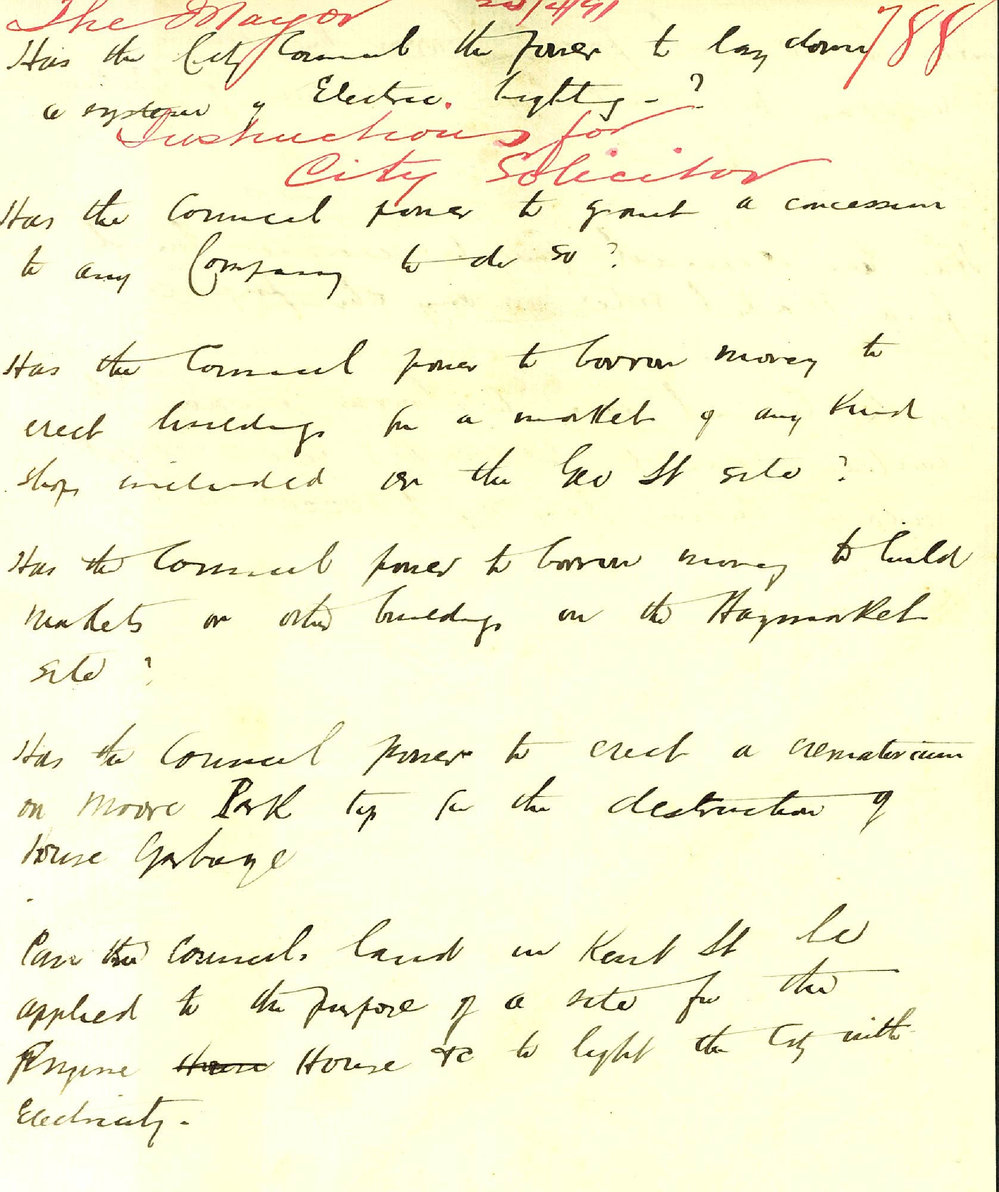 The Mayor 788
Has the City Council the power to lay down
a system of Electric lighting - ?
Instructions for
City Solicitor
Has the Council power to grant a concession
to any Company to do so ?
Has the Council power to borrow money to
erect buildings for a market of any kind
shops included on the Geo St site ?
Has the Council power to borrow money to build
markets or other buildings on the Haymarket
site ?
Has the Council power to erect a crematorium
on Moore Park tip for the destruction of
House Garbage
Can the Council's land in Kent St be
applied to the purpose of a site for the
Engine House House &c to light the City with
Electricity.